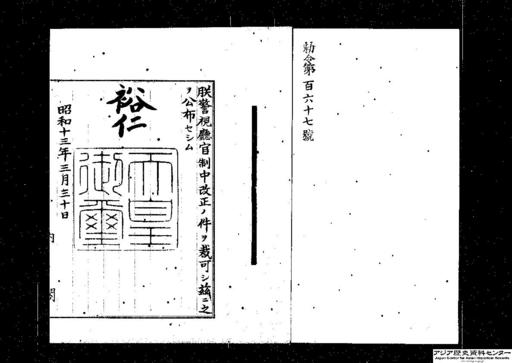 勅令第百六十七號
朕警視廳官制中改正ノ件ヲ裁可シ茲ニ之
ヲ公布セシム
裕仁
天皇
御璽
昭和十三年三月三十日
内閣
アジア歴史資料センター
Japan Center for Asian Historical Records